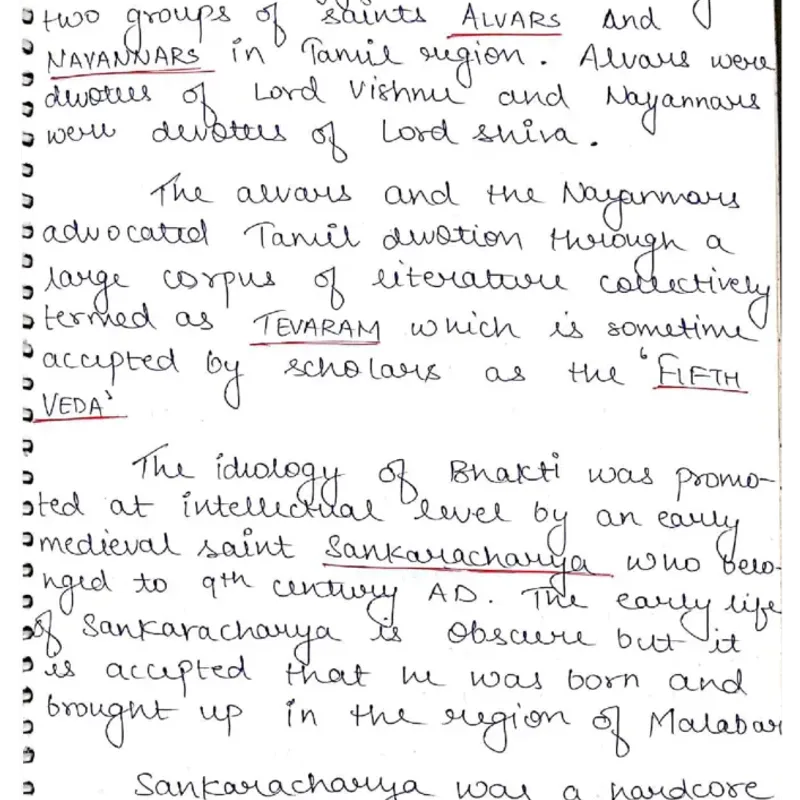 two groups of saints ALVARS and
NAYANNARS in Tamil region. Alvars were
devotees of Lord Vishnu and Nayannars
were devotees of Lord shiva.
The alvars and the Nayanmars
advocated Tamil devotion through a
large corpus of literature collectively
termed as TEVARAM which is sometime
accepted by scholars as the 'FIFTH
VEDA'
The ideology of Bhakti was promo-
ted at intellectual level by an early
medieval saint Sankaracharya who belo-
nged to 9th century AD. The early life
of Sankaracharya is obscure but it
is accepted that he was born and
brought up in the region of Malabar
Sankaracharya was a hardcore